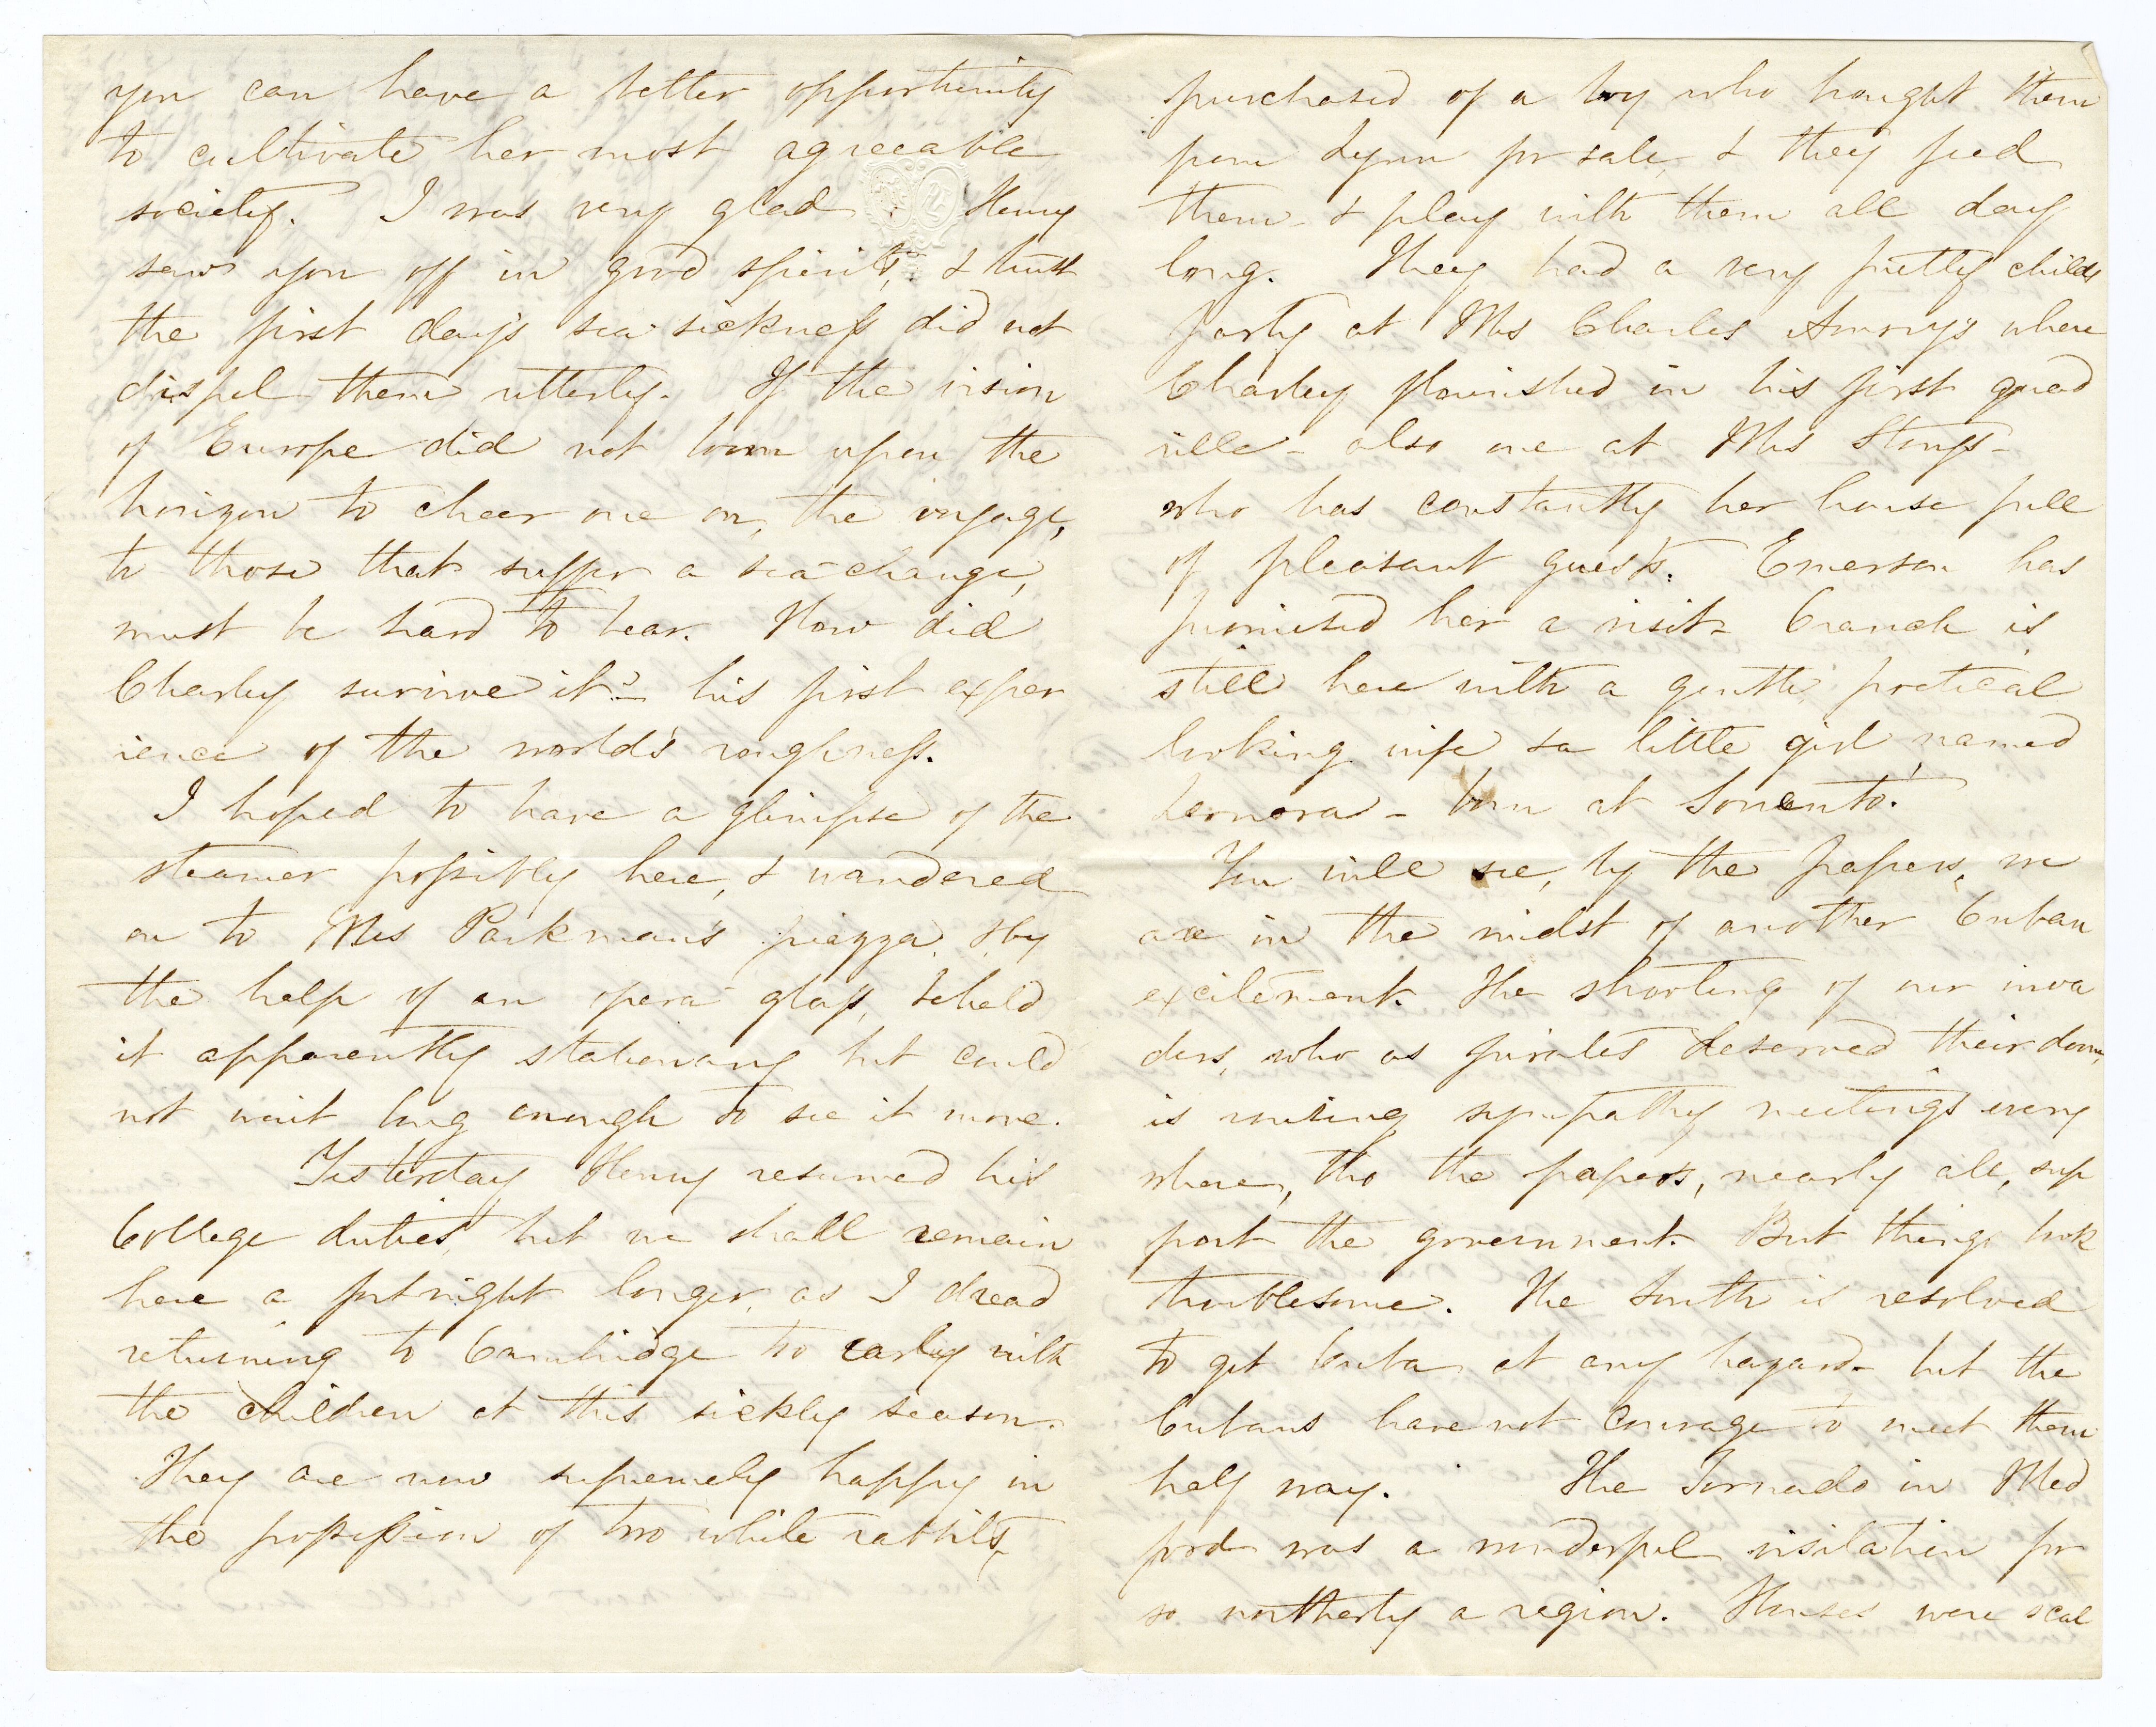 you can have a better opportunity
to cultivate her most agreeable
society. I was very glad Henry
saw you off in good spirits, & trust
the first day's sea-sickness did not
dispel them utterly. If the vision
of Europe did not loom upon the
horizon to cheer one on, the voyage,
to those that suffer a sea-change,
must be hard to bear. How did
Charley survive it? – his first exper
ience of the world's roughness.
I hoped to have a glimpse of the
steamer possibly here, & wandered
on to Mrs Parkman's piazza, & by
the help of an opera glass, beheld
it apparently stationary but could
not wait long enough to see it move.
Yesterday Henry resumed his
College duties, but we shall remain
here a fortnight longer, as I dread
returning to Cambridge too early with
the children at this sickly season.
They are now supremely happy in
the possession of two white rabbits,
purchased of a boy who brought them
from Lynn for sale, & they feed
them & play with them all day
long. They had a very pretty childs
party at Mrs Charles Amory's where
Charley flourished in his first quad
rille – also one at Mrs Story's –
who has constantly her house full
of pleasant guests. Emerson has
promised her a visit – Cranch is
still here with a gentle poetical
looking wife & a little girl named
Leonora – born at Sorrento.
You will see, by the papers, we
are in the midst of another Cuban
excitement. The shooting of our inva
ders, who as pirates deserved their doom,
is uniting sympathy meetings every
where, tho the papers, nearly all, sup
port the government. But things look
troublesome. The South is resolved
to get Cuba at any hazard – but the
Cubans have not courage to meet them
half way. The Tornado in Med
ford was a wonderful visitation for
so northerly a region. Houses were scat